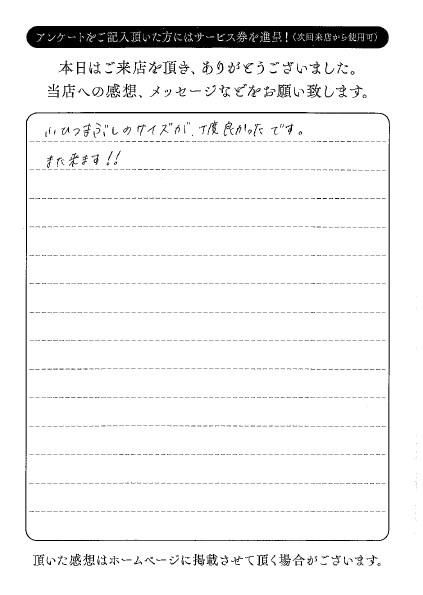 アンケートをご記入頂いた方にはサービス券を進呈！(次回来店から使用可)
本日はご来店を頂き、ありがとうございました。
当店への感想、メッセージなどをお願い致します。
小ひつまぶしのサイズが、丁度良かったです。
また来ます!!
頂いた感想はホームページに掲載させて頂く場合がございます。